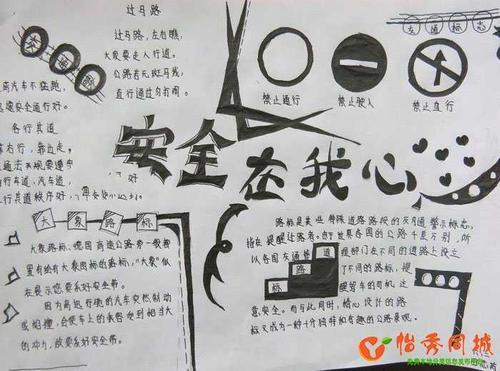 过马路
过马路，左右瞧，
大家要走人行道。
公路若无斑马线，
直行通过勿打闹。
交通
汽车不猛跑，
安全通行好。
各行其道
右行，靠边走。
行车道，汽车道，
交通标志
禁止通行
禁止驶入
禁止直行
安全在我心
大象路标
大象路标，德国高速公路旁一般都
竖有绘有大象图标的路标，"大象"似
在提示您要系好安全带。
因为高速行驶的汽车突然制动
或相撞，会使车上的乘客受到相当大
的冲力，故要系好安全带。
路标是某些特殊道路路段的交通警示标志，
旨在提醒让路者。由于世界各国的公路千差万别，所
以各国交通管
理部门在不同的道路上设立
了不同的路标，提
醒驾车的司机注
意安全。与此同时，精心设计的路
标又成为一种十分独特和有趣的公路景观。
道
路
标
怡秀同城